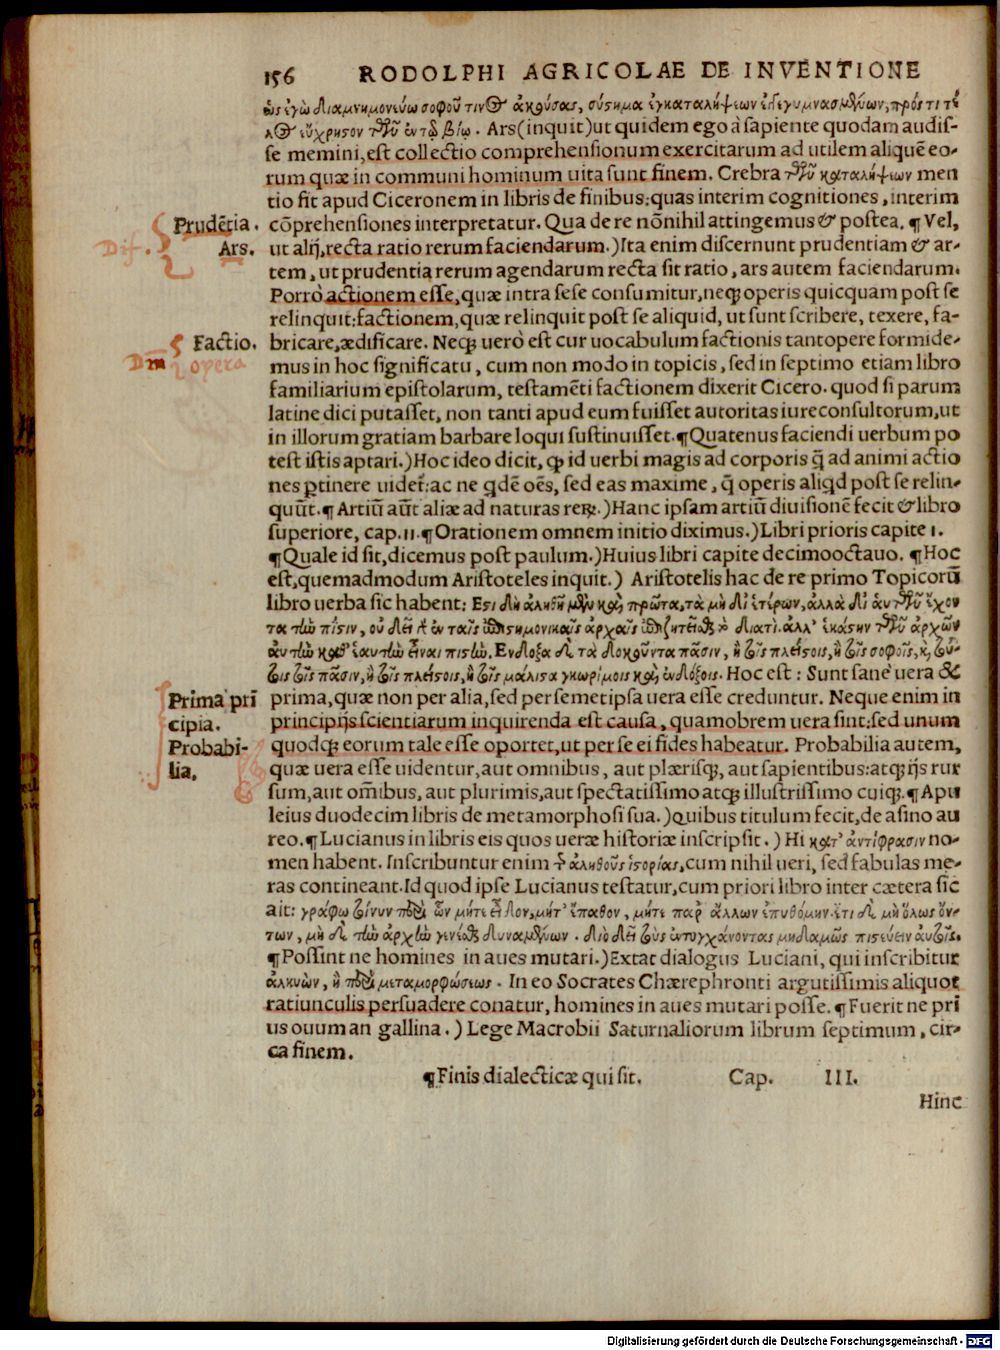 156 RODOLPHI AGRICOLAE DE INVENTIONE
ὡς ἐγὼ διαμνημονεύω σοφοῦ τινος ἀκούσας, σύστημα ἐγκαταλήψεων ἐγγεγυμνασμένων, πρός τι τέ
λος εὔχρηστον τῶν ἐν τῷ βίῳ. Ars(inquit)ut quidem ego à sapiente quodam audis-
se memini, est collectio comprehensionum exercitarum ad utilem aliquẽ eo-
rum quæ in communi hominum uita sunt finem. Crebra τῶν καταλήψεων men
tio fit apud Ciceronem in libris de finibus:quas interim cognitiones, interim
Prudẽtia. cõprehensiones interpretatur. Qua de re nõnihil attingemus & postea. ¶ Vel,
Dif. Ars. ut alij, recta ratio rerum faciendarum.) Ita enim discernunt prudentiam & ar-
tem, ut prudentia rerum agendarum recta sit ratio, ars autem faciendarum.
Porrò actionem esse, quæ intra sese consumitur, neq; operis quicquam post se
relinquit:factionem, quæ relinquit post se aliquid, ut sunt scribere, texere, fa-
Factio. bricare, ædificare. Neq; uerò est cur uocabulum factionis tantopere formide-
opera mus in hoc significatu, cum non modo in topicis, sed in septimo etiam libro
familiarium epistolarum, testamẽti factionem dixerit Cicero. quod si parum
latine dici putasset, non tanti apud eum fuisset autoritas iureconsultorum, ut
in illorum gratiam barbare loqui sustinuisset. ¶ Quatenus faciendi uerbum po
test istis aptari.) Hoc ideo dicit, ꝙ id uerbi magis ad corporis q̃ ad animi actio
nes ꝑtinere uideť:ac ne qdẽ oẽs, sed eas maxime, q̃ operis aliqd post se relin-
quũt. ¶ Artiũ aũt aliæ ad naturas reꝝ.) Hanc ipsam artiũ diuisionẽ fecit & libro
superiore, cap. 11. ¶ Orationem omnem initio diximus.) Libri prioris capite 1.
¶ Quale id sit, dicemus post paulum.) Huius libri capite decimooctauo. ¶ Hoc
est, quemadmodum Aristoteles inquit.) Aristotelis hac de re primo Topicorũ
libro uerba sic habent: Εστι δὴ ἀληθῆ μὲν καὶ πρῶτα, τὰ μὴ δι' ἑτέρων, ἀλλὰ δι' αὑτῶν ἔχον
τα τὴν πίστιν, οὐ δεῖ γὰρ ἐν ταῖς ἐπιστημονικαῖς ἀρχαῖς ἐπιζητεῖσθαι τὸ διατί. ἀλλ' ἑκάστην τῶν ἀρχῶν
αὐτὴν καθ' ἑαυτὴν εἶναι πιστήν. Ενδοξα δὲ τὰ δοκοῦντα πᾶσιν, ἢ τοῖς πλείστοις, ἢ τοῖς σοφοῖς, καὶ τού-
τοις τοῖς πᾶσιν, ἢ τοῖς πλείστοις, ἢ τοῖς μάλιστα γνωρίμοις καὶ ἐνδόξοις. Hoc est: Sunt sanè uera &
Prima prĩ prima, quæ non per alia, sed per semetipsa uera esse creduntur. Neque enim in
cipia. principijs scientiarum inquirenda est causa, quamobrem uera sint:sed unum
Probabi- quodq; eorum tale esse oportet, ut per se ei fides habeatur. Probabilia autem,
lia. quæ uera esse uidentur, aut omnibus, aut plærisq;, aut sapientibus:atq; ijs rur
sum, aut om̃ibus, aut plurimis, aut spectatissimo atq; illustrissimo cuiq;. ¶ Apu
leius duodecim libris de metamorphosi sua.) Quibus titulum fecit, de asino au
reo. ¶ Lucianus in libris eis quos ueræ historiæ inscripsit.) Hi κατ' ἀντίφρασιν no-
men habent. Inscribuntur enim τῆς ἀληθοῦς ἱστορίας, cum nihil ueri, sed fabulas me-
ras contineant. Id quod ipse Lucianus testatur, cum priori libro inter cætera sic
ait: γράφω τοίνυν περὶ ὧν μήτε εἶδον, μήτ' ἔπαθον, μήτε παρ' ἄλλων ἐπυθόμην. ἔτι δὲ μὴ ὅλως ὄν-
των, μὴ δὲ τὴν ἀρχὴν γενέσθαι δυναμένων. διὸ δεῖ τοὺς ἐντυγχάνοντας μηδαμῶς πιστεύειν αὐτοῖς.
¶ Possint ne homines in aues mutari.) Extat dialogus Luciani, qui inscribitur
ἀλκυὼν, ἢ περὶ μεταμορφώσεως. In eo Socrates Chærephronti argutissimis aliquot
ratiunculis persuadere conatur, homines in aues mutari posse. ¶ Fuerit ne pri
us ouum an gallina.) Lege Macrobii Saturnaliorum librum septimum, cir-
ca finem.
¶ Finis dialecticæ qui sit. Cap. III.
Hinc
Digitalisierung gefördert durch die Deutsche Forschungsgemeinschaft - DFG